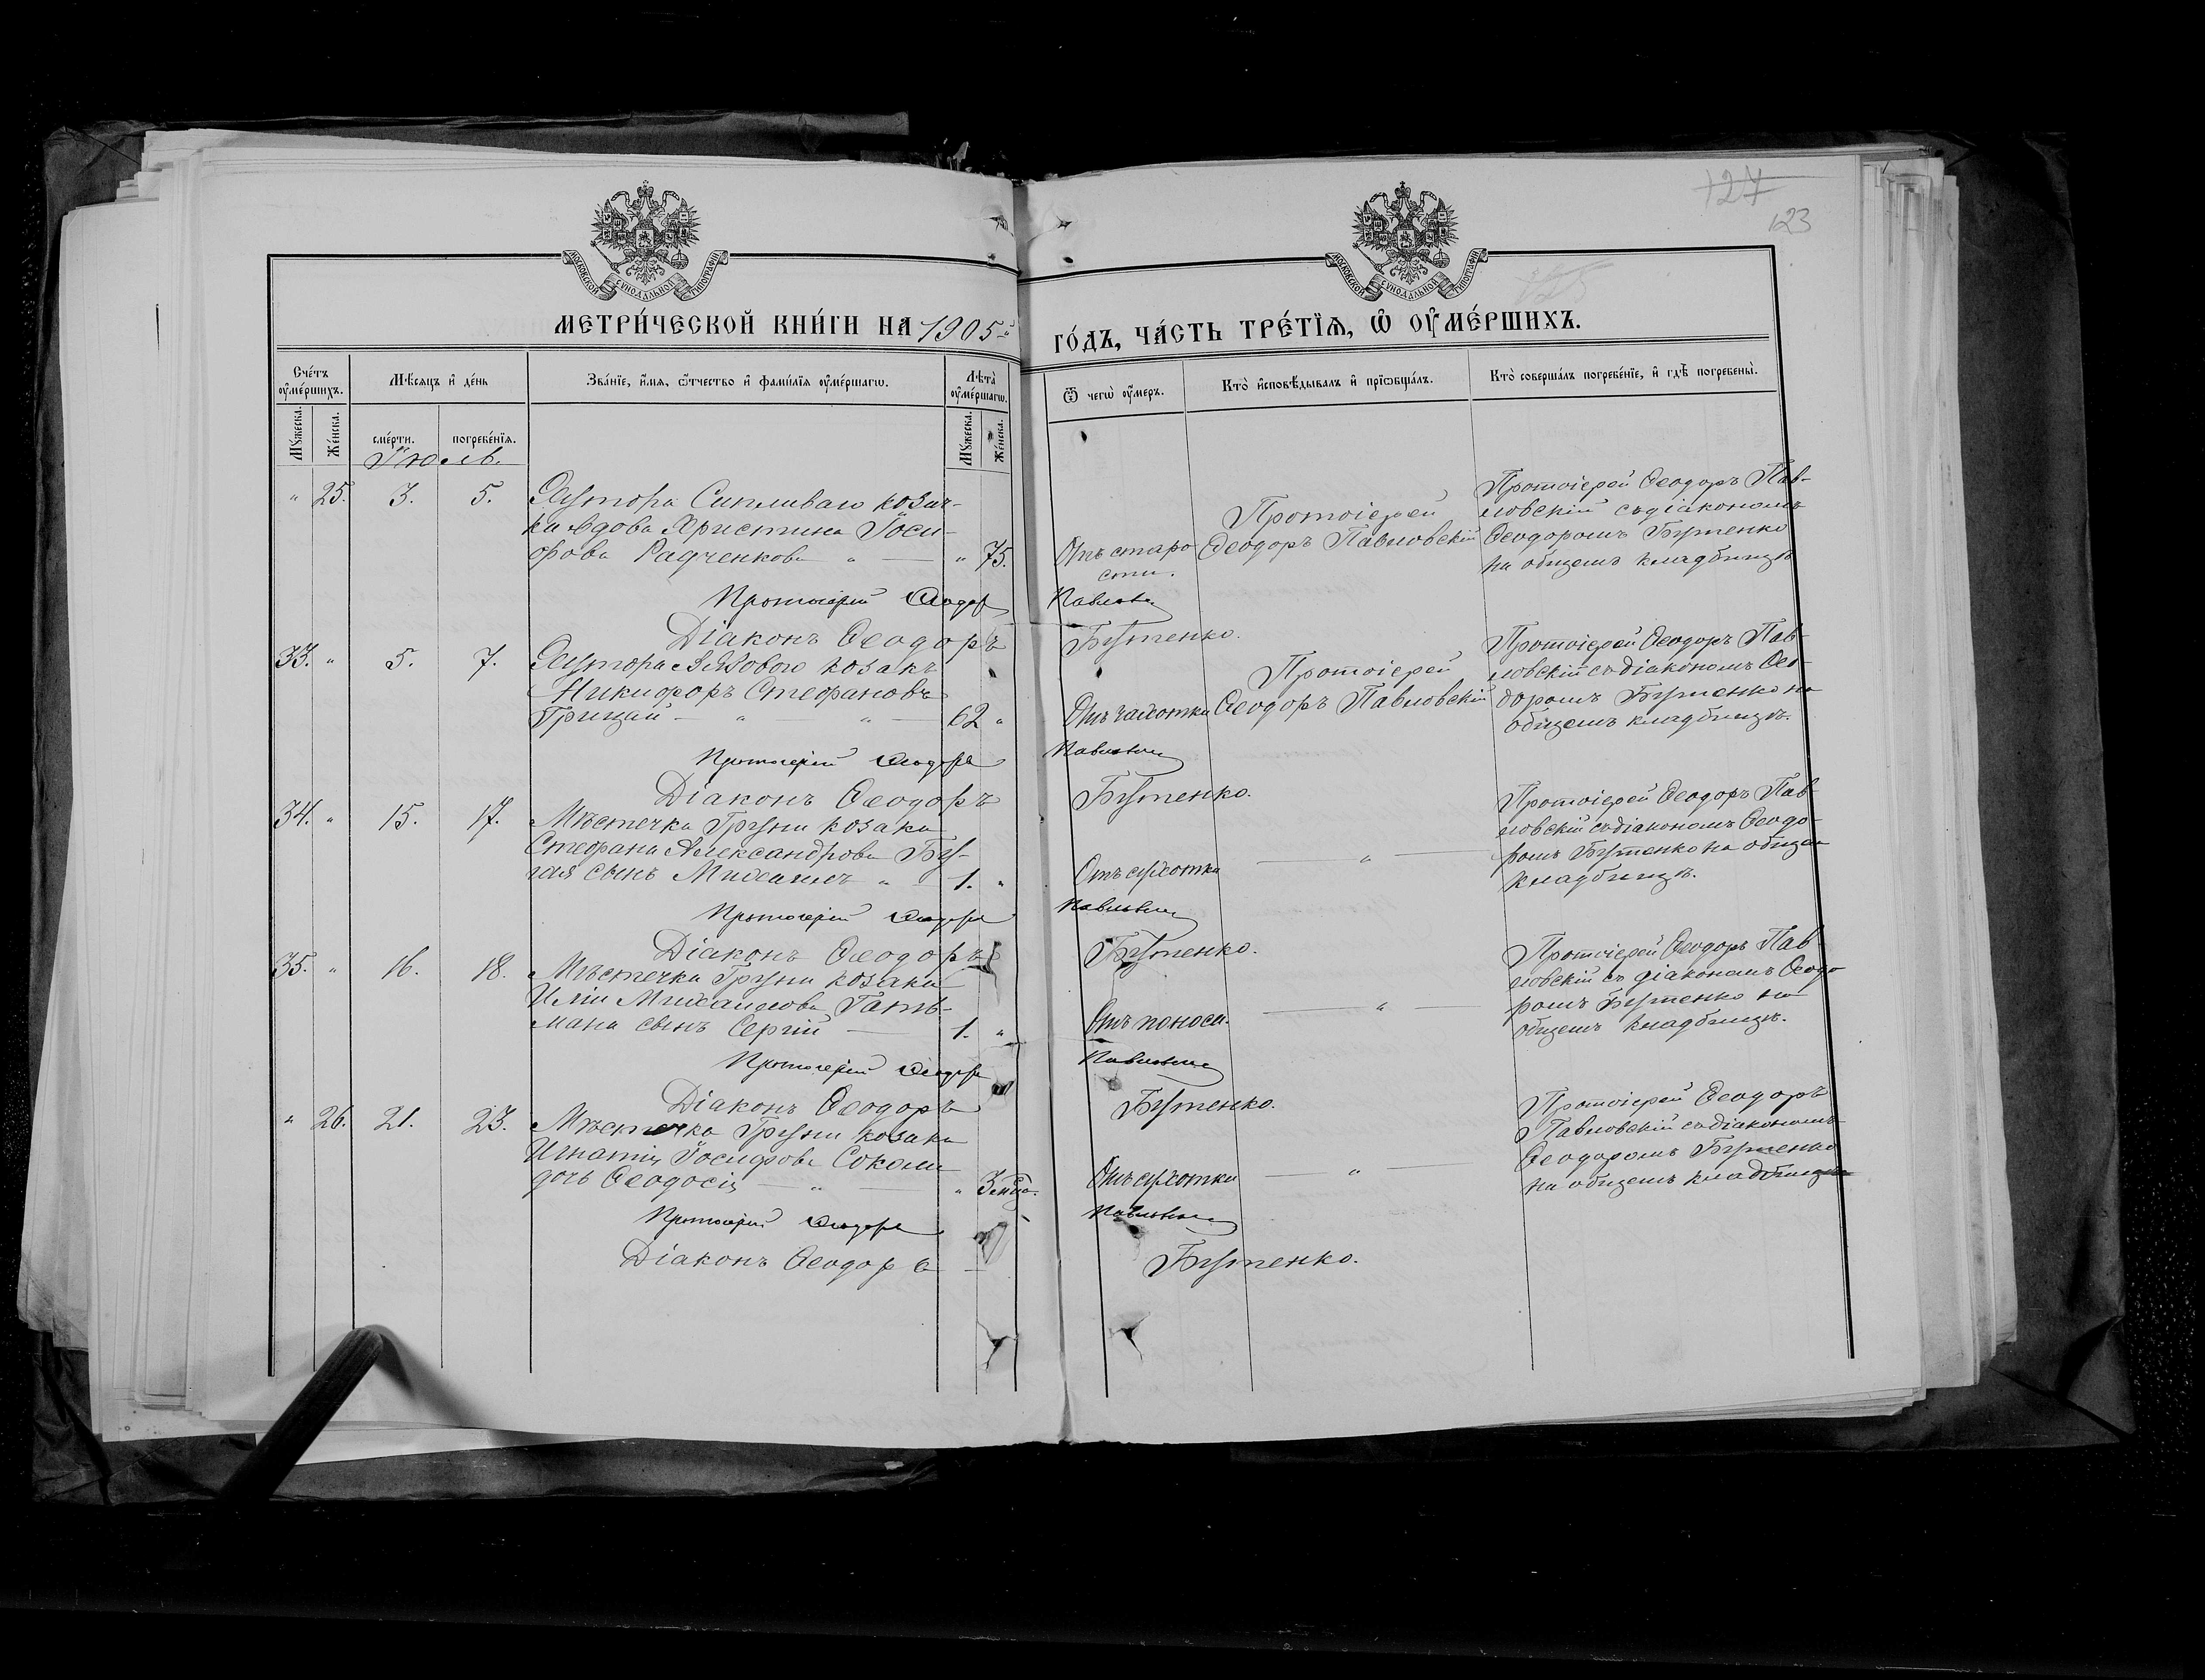 127
123
МОСКОВСКОЙ СѴНОДАЛЬНОЙ ТИПОГРАФІИ
МОСКОВСКОЙ СѴНОДАЛЬНОЙ ТИПОГРАФІИ
МЕТРИ́ЧЕСКОЙ КНИ́ГИ НА 1905й
ГО́ДЪ, ЧА́СТЬ ТРЕ́ТЇѦ, Ѡ҆ ОУ҆МЕ́РШИХЪ.
Сче́тъ оу҆ме́ршихъ.
Мѣсяцъ и҆ де́нь
Зва́нїе, и҆́мя, ѻ҆́тчество и҆ фами́лїя оу҆ме́ршагѡ.
Лѣта̀ оу҆ме́ршагѡ.
Ѿ чегѡ̀ оу҆́меръ.
Кто̀ и҆сповѣ́дывалъ и҆ прїѡбща́лъ.
Кто̀ соверша́лъ погребе́нїе, и҆ гдѣ̀ погребены̀.
Мꙋ́жеска.
Же́нска.
сме́рти.
погребе́нїя.
Мꙋ́жеска.
Же́нска.
Іюль.
" 25. 3. 5. Хутора Сипливаго козач-
ки вдова Христина Іоси-
фова Радченкова " — " 75.
Отъ старо
сти.
Протоіерей
Ѳеодоръ Павловскій
Протоіерей Ѳеодоръ Пав-
ловскій съ діакономъ
Ѳеодоромъ Бутенко
на общемъ кладбищѣ
Протоіерей Ѳеодоръ Павловскій
Діаконъ Ѳеодоръ Бутенко.
33. " 5. 7. Хутора козакъ
Никифоръ Стефановъ
Грицай — " — " — 62 "
Отъ чахотки
Протоіерей
Ѳеодоръ Павловскій
Протоіерей Ѳеодоръ Пав-
ловскій съ діакономъ Ѳео-
доромъ Бутенко на
общемъ кладбищѣ.
Протоіерей Ѳеодоръ Павловскій
Діаконъ Ѳеодоръ Бутенко.
34. " 15. 17. Мѣстечка Груни козака
Стефана Александрова Бу-
гая сынъ Михаилъ " — 1. "
Отъ сухотки
— " —
Протоіерей Ѳеодоръ Пав-
ловскій съ діакономъ Ѳеодо-
ромъ Бутенко на общемъ
кладбищѣ.
Протоіерей Ѳеодоръ Павловскій
Діаконъ Ѳеодоръ Бутенко.
35. " 16. 18. Мѣстечка Груни козака
Иліи Михаилова Геть-
мана сынъ Сергій — 1. "
Отъ поноса.
— " —
Протоіерей Ѳеодоръ Пав
ловскій съ діакономъ Ѳеодо
ромъ Бутенко на
общемъ кладбищѣ.
Протоіерей Ѳеодоръ Павловскій
Діаконъ Ѳеодоръ Бутенко.
" 26. 21. 23. Мѣстечка Груни козака
Игнатія Іосифова Сокола
дочь Ѳеодосія — " — " 3 мѣс.
Отъ сухотки
— " —
Протоіерей Ѳеодоръ
Павловскій съ діакономъ
Ѳеодоромъ Бутенко
на общемъ кладбищѣ
Протоіерей Ѳеодоръ Павловскій
Діаконъ Ѳеодоръ Бутенко.